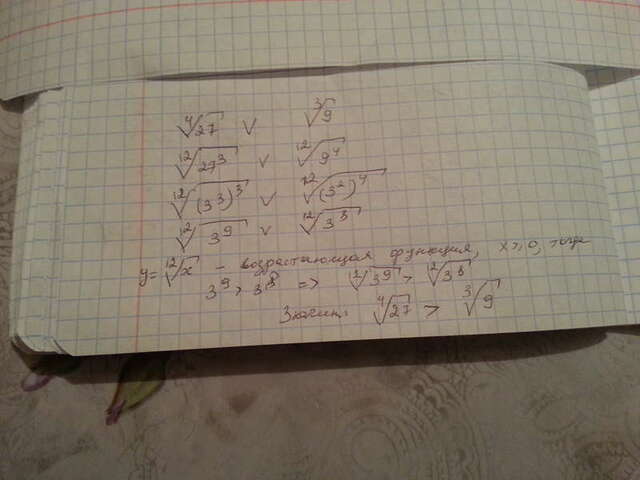 ⁴√27 ∨ ³√9
¹²√27³ ∨ ¹²√9⁴
¹²√(3³)³ ∨ ¹²√(3²)⁴
¹²√3⁹ ∨ ¹²√3⁸
y = ¹²√x - возрастающая функция, x ≥ 0, тогда
3⁹ > 3⁸ => ¹²√3⁹ > ¹²√3⁸
Значит, ⁴√27 > ³√9